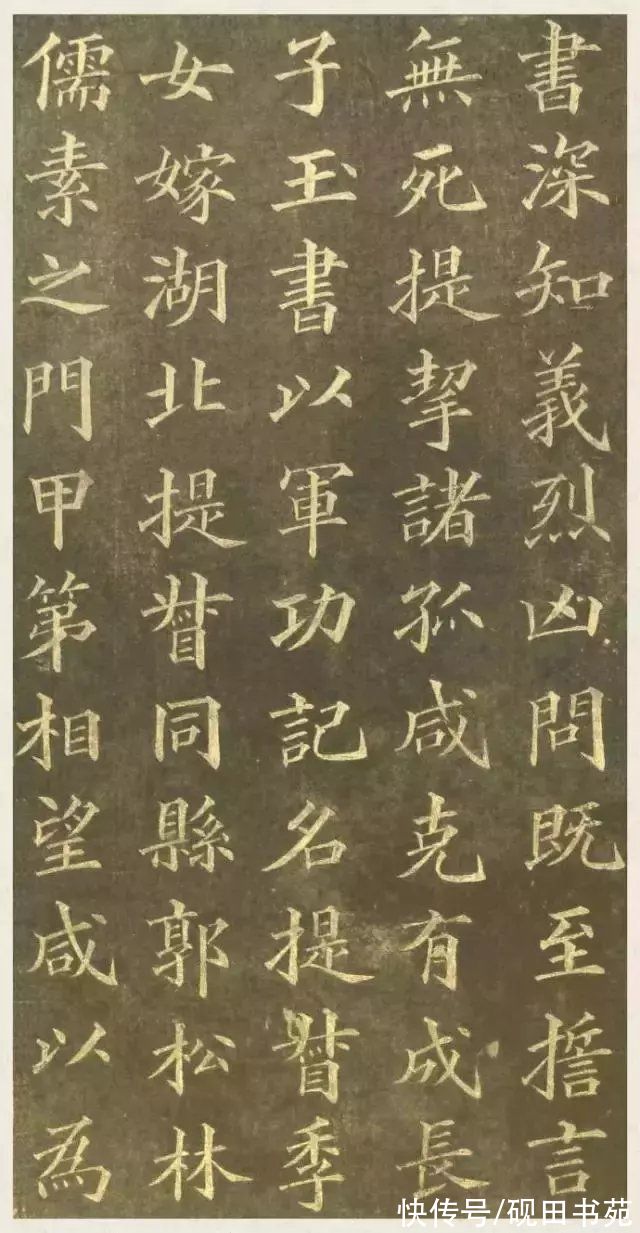 書深知義烈凶問既至誓言
無死提挈諸孤咸克有成長
子玉書以軍功記名提督季
女嫁湖北提督同縣郭松林
儒素之門甲第相望咸以為
快传号/砚田书苑